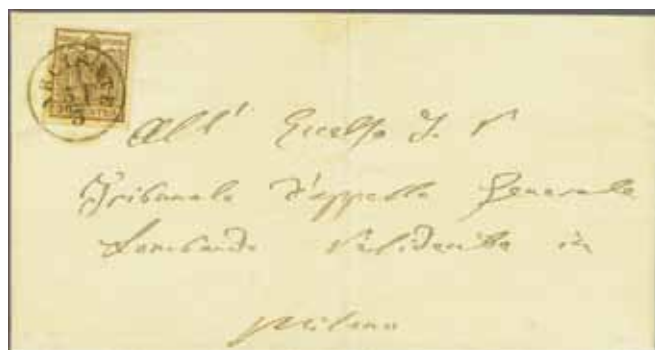 30 CENTES
31
3
All' Eccelso I. R.
Tribunale d'appello Generale
Lombardo Residente in
Milano